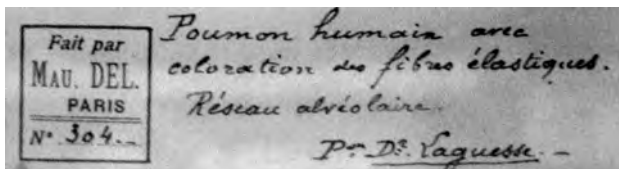 Fait par
MAU. DEL.
PARIS
N° 304.-
Poumon humain avec
coloration des fibres élastiques.
Réseau alvéolaire.
Pr. Dr. Laguesse. -